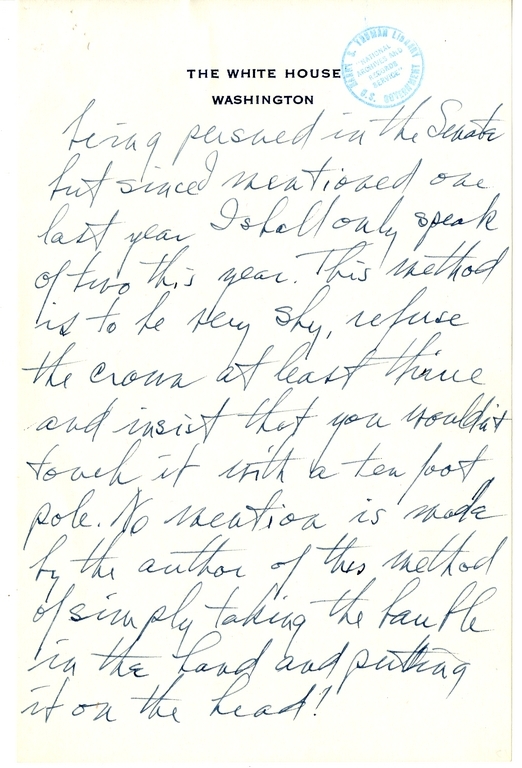 THE WHITE HOUSE
WASHINGTON
HARRY S. TRUMAN LIBRARY
"NATIONAL
ARCHIVES AND
RECORDS
SERVICE"
U.S.
being persued in the Senate
but since I mentioned one
last year I shall only speak
of two this year. This method
is to be very shy, refuse
the crown at least thrice
and insist that you wouldn't
touch it with a ten foot
pole. No mention is made
by the author of this method
of simply taking the bauble
in the hand and putting
it on the head!